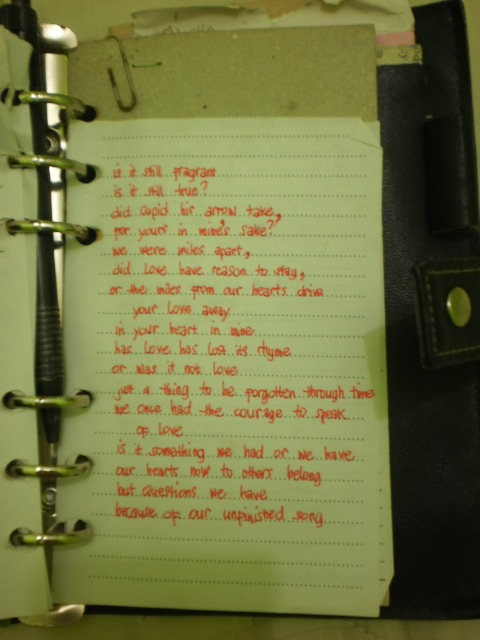 is it still fragrant
is it still true?
did cupid his arrow take,
for yours in mine's sake?
we were miles apart,
did love have reason to stay,
or the miles from our hearts drive
your love away
in your heart in mine
has love has lost its rhyme
or was it not love
yet a thing to be forgotten through time
we once had the courage to speak
of love
is it something we had or we have
our hearts now to others belong
but questions we have
because of our unfinished song